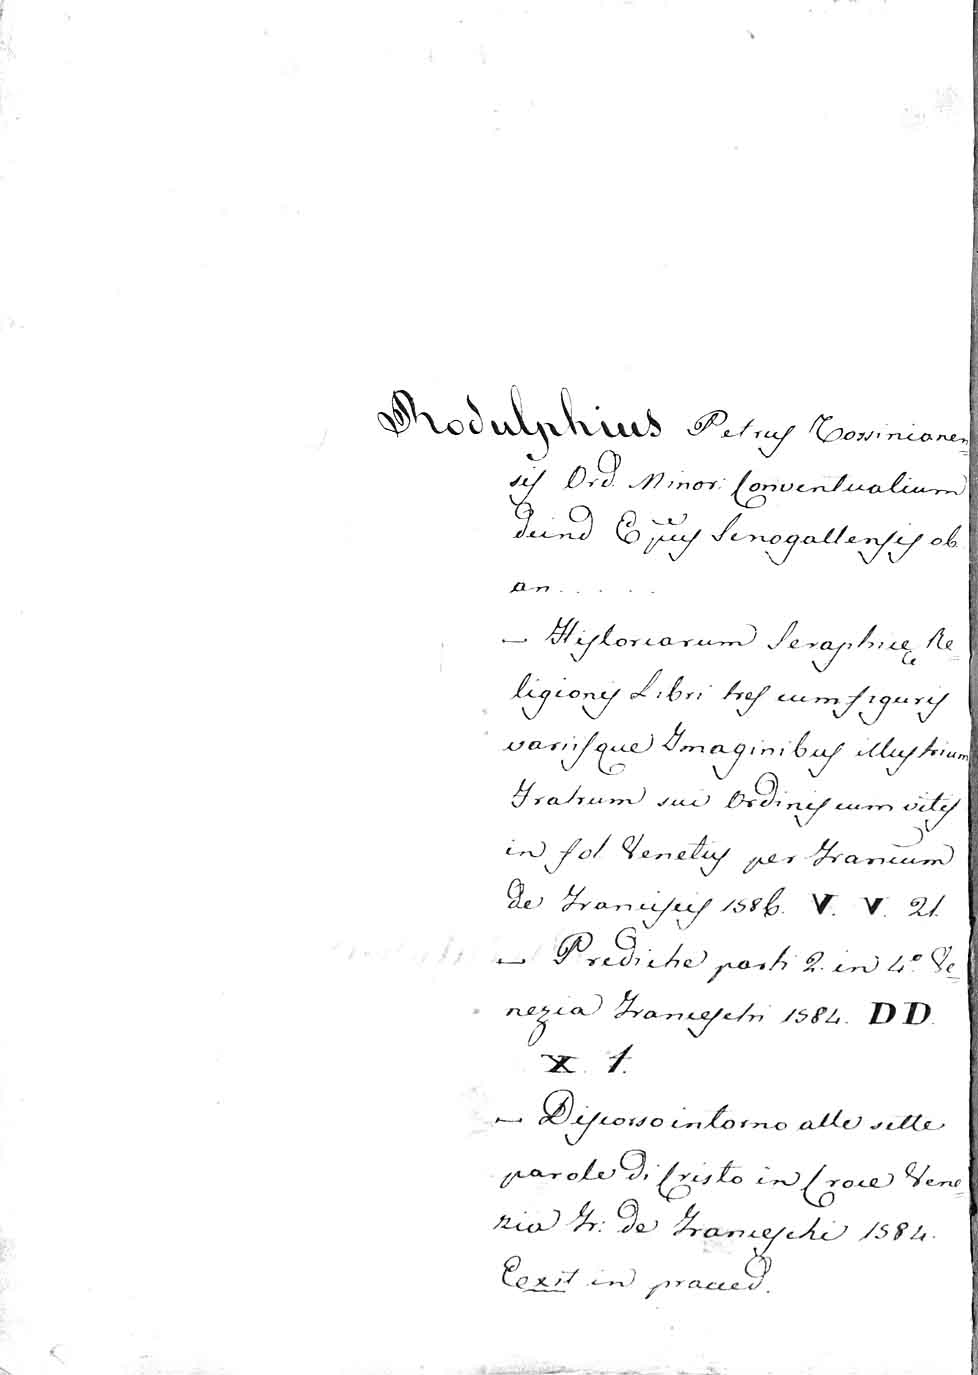 Rodulphius Petrus Tossinianen
sis Ord. Minor: Conventualium
deind Ep̃us Senogallensis ob.
an . . . . .
— Historiarum Seraphicę Re=
ligionis Libri tres cum figuris
variisque Imaginibus illustrium
Fratrum sui Ordinis cum vitis
in fol Venetiis per
de Francisis 1586. V. V. 21.
— Prediche parti 2. in 4.º Ve=
nezia Franceschi 1584. DD.
X. 1.
— Discorso intorno alle sette
parole di Cristo in Croce Vene=
zia Fr: de Franceschi 1584.
in praced.